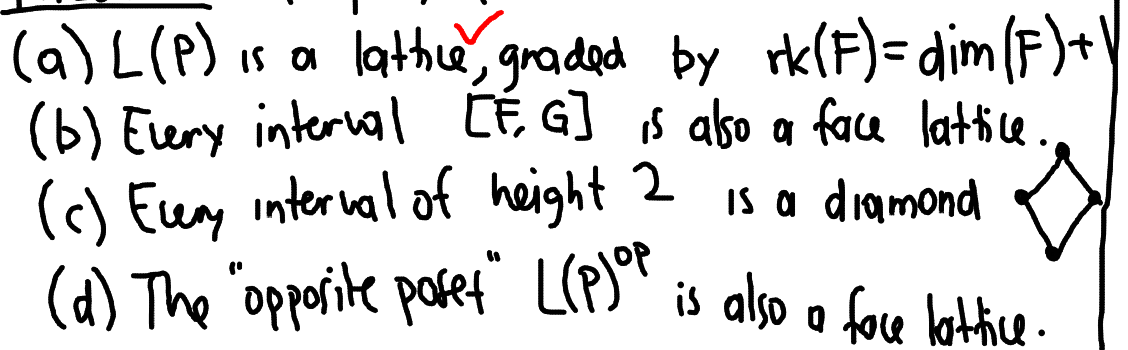 (a) L(P) is a lattice, graded by rk(F)=dim(F)+1
(b) Every interval [F, G] is also a face lattice.
(c) Every interval of height 2 is a diamond
(d) The "opposite poset" L(P)^op is also a face lattice.